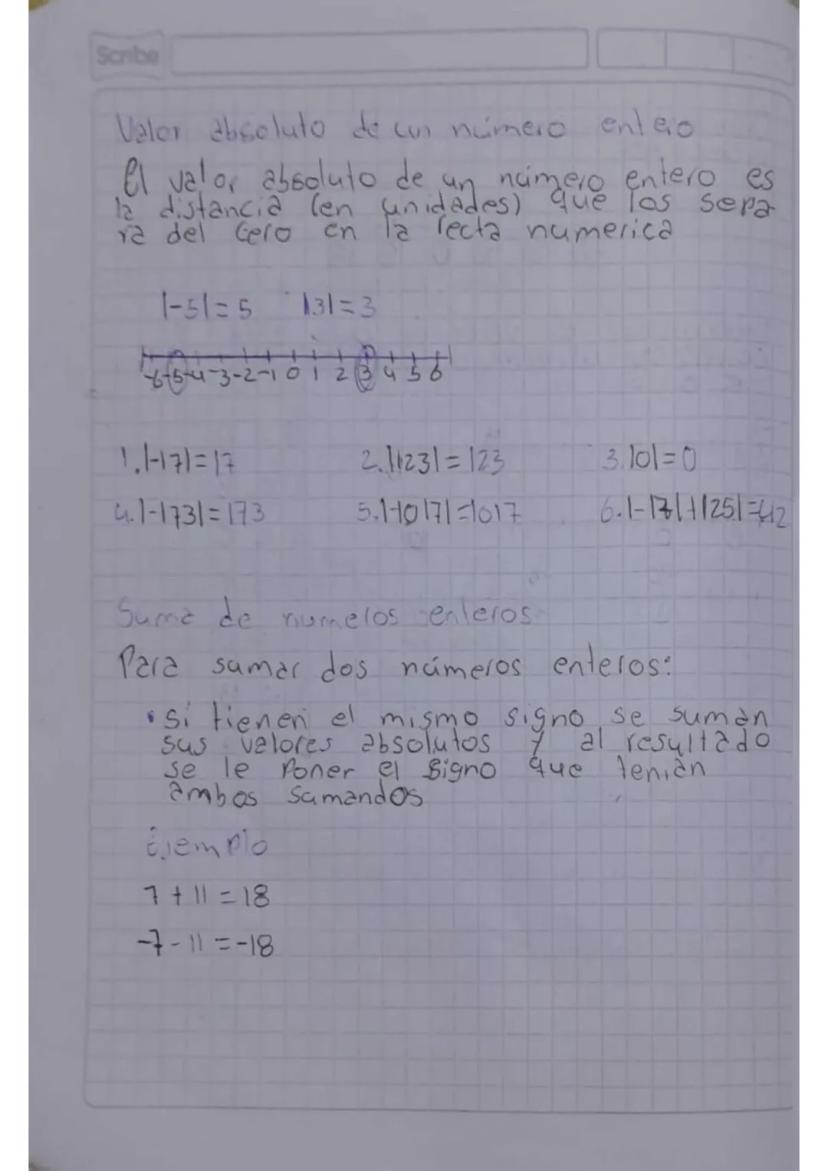 Scribe
Valor absoluto de un número entero
El valor absoluto de un número entero es
la distancia (en unidades) que los sepa
ra del cero en la recta numerica
|-5|=5 |3|=3
-6-5-4-3-2-1 0 1 2 3 4 5 6
1.|-17|=17 2.|123|=123 3.|0|=0
4.|-173|=173 5.|-1017|=1017 6.|-17|+|25|=42
Suma de numeros enteros
Para sumar dos números enteros:
• Si tienen el mismo signo se suman
sus valores absolutos y al resultado
se le poner el signo que tenian
ambos sumandos
Ejemplo
7 + 11 = 18
-7 - 11 = -18